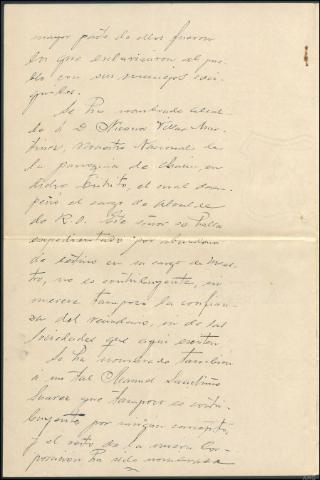 mayor parte de ellos fueron
los que esclavizaron al pue-
blo con sus manejos caci-
quiles.
Se ha nombrado alcal-
de á D. Nicanor Villar Mar-
tinez, maestro Nacional de
la parroquia de en
dicho Distrito, el cual desem-
peñó el cargo de alcalde
de R.O. Este señor se halla
expedientado por abandono
de destino en su cargo de Maes-
tro, no es contribuyente, no
merece tampoco la confian-
za del vecindario, ni de las
Sociedades que aquí existen
Se ha nombrado tambien
á un tal Manuel
Suarez que tampoco es contri-
buyente por ningun concepto
y el resto de la nueva Cor-
poración ha sido nombrada